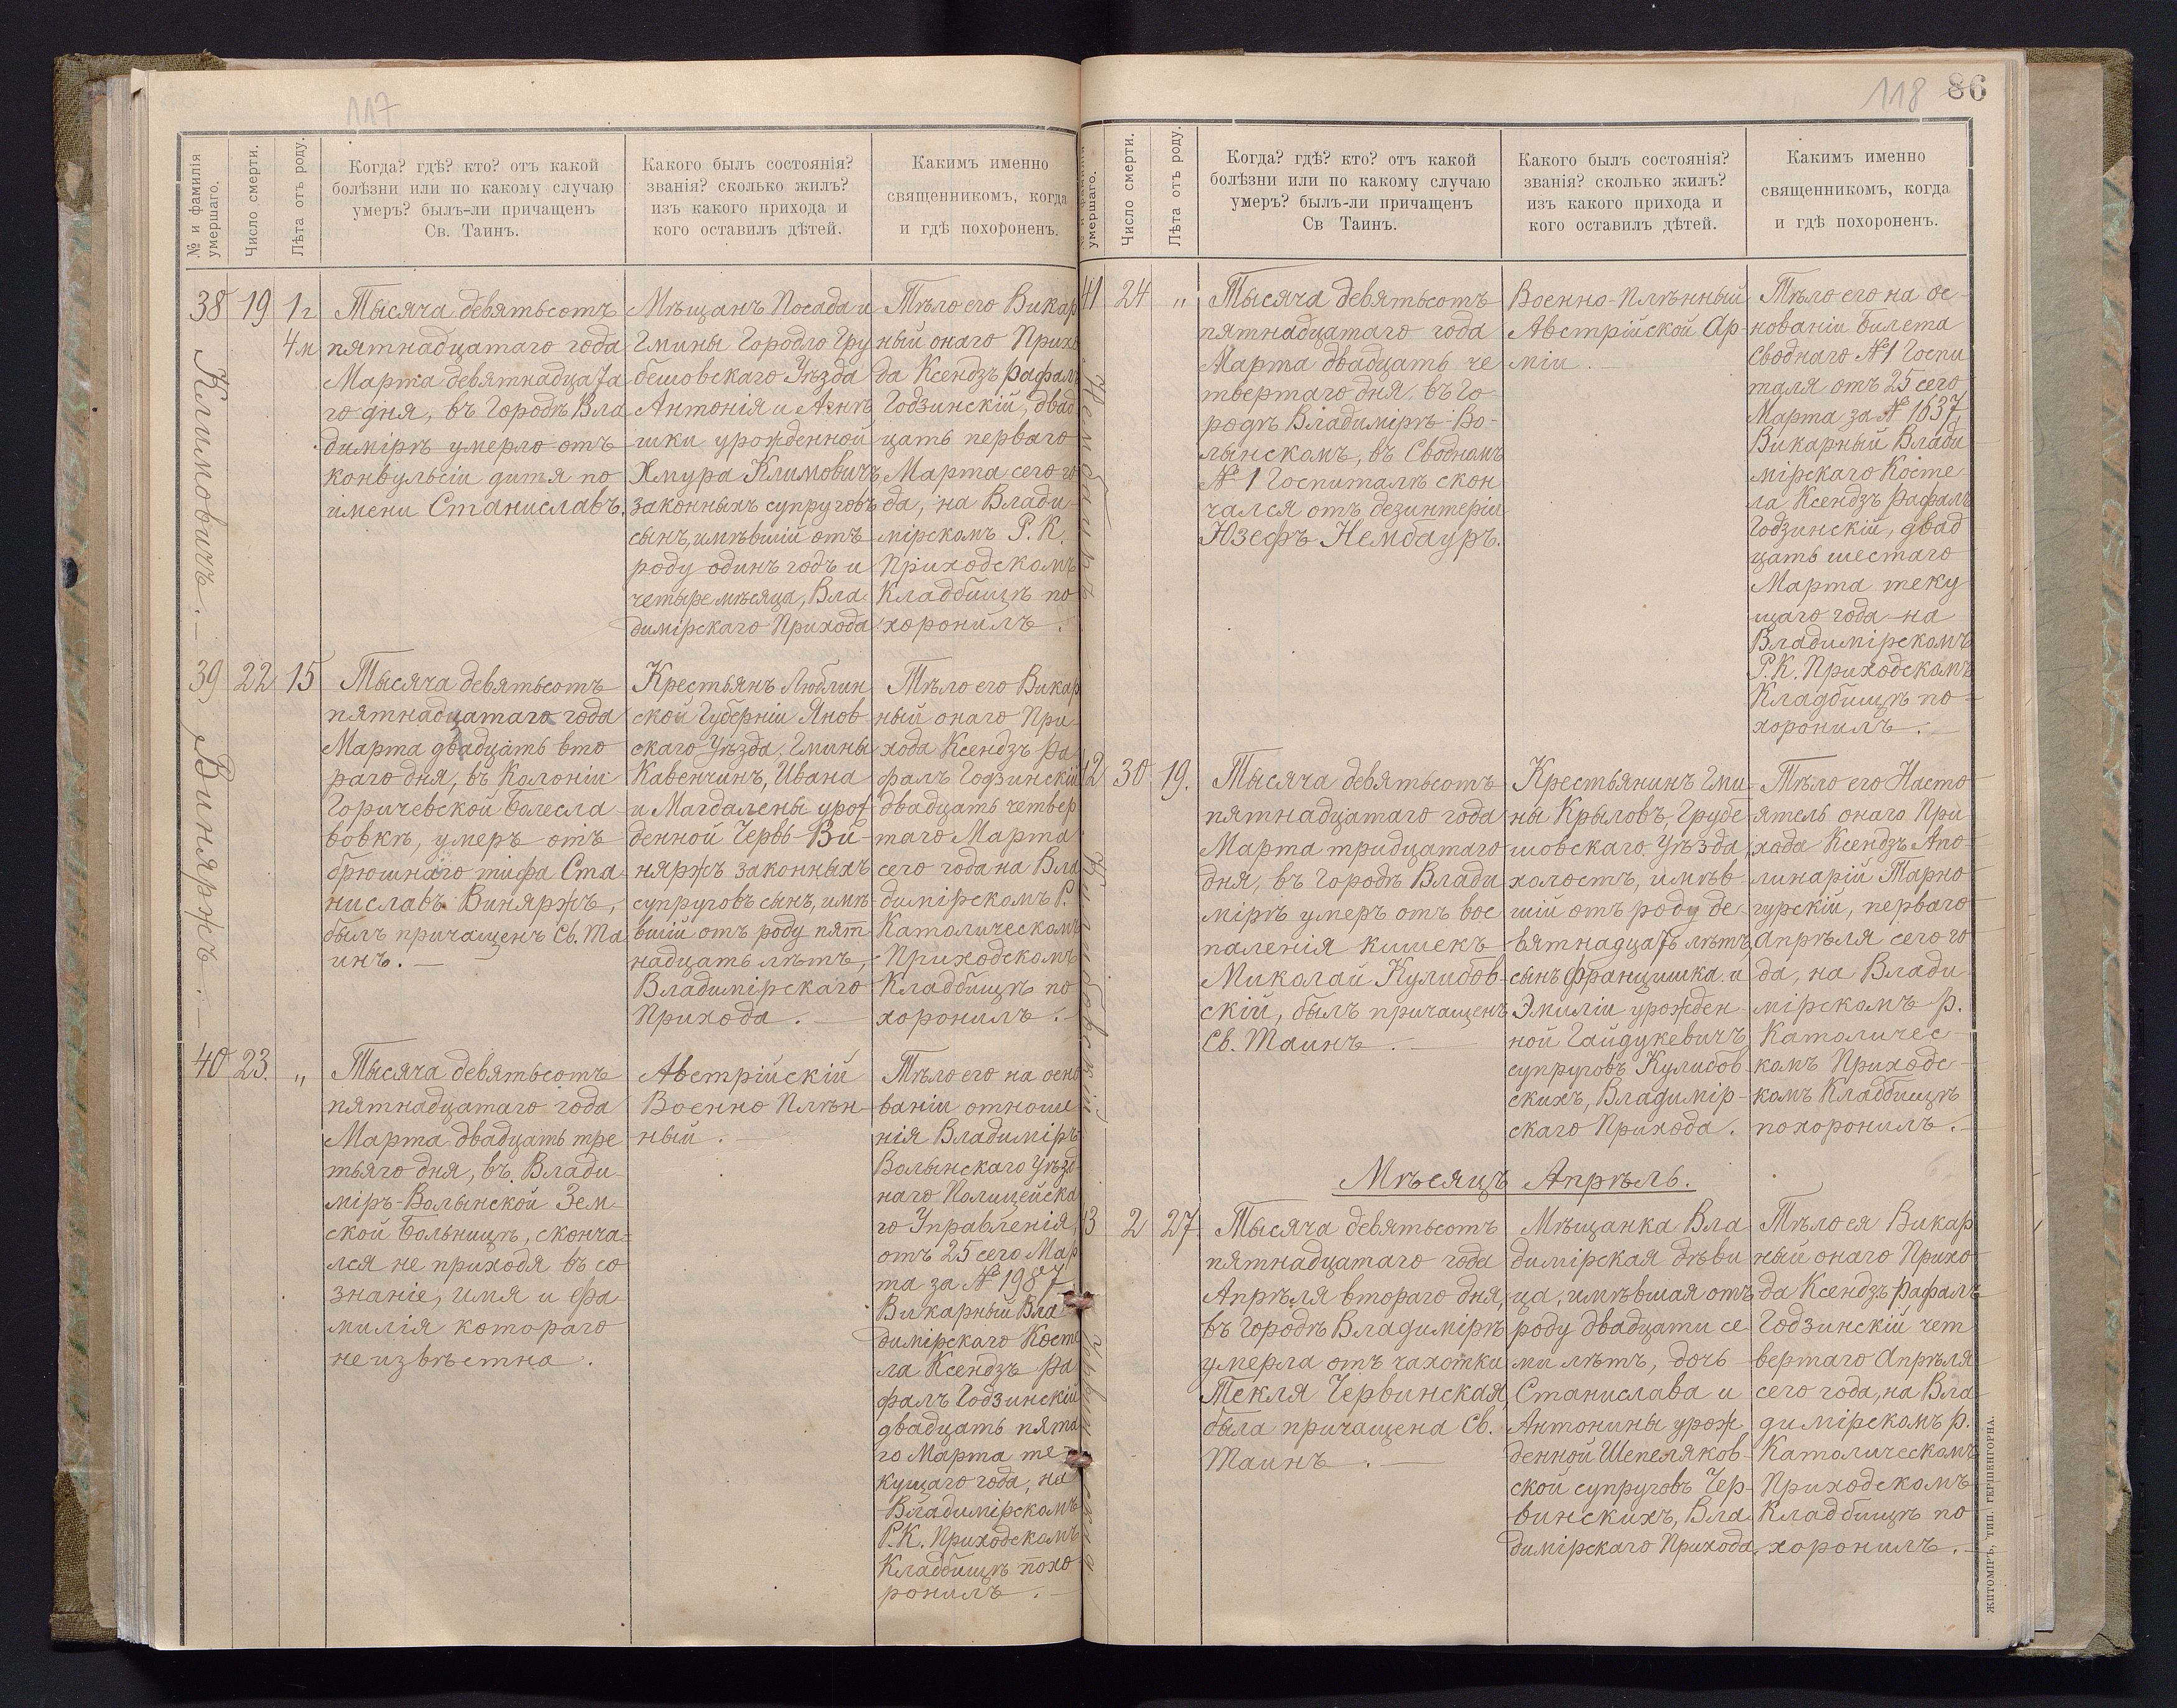 117
№ и фамилія умершаго.
Число смерти.
Лѣта отъ роду.
Когда? гдѣ? кто? отъ какой
болѣзни или по какому случаю
умеръ? былъ-ли причащенъ
Св. Таинъ.
Какого былъ состоянія?
званія? сколько жилъ?
изъ какого прихода и
кого оставилъ дѣтей.
Какимъ именно
священникомъ, когда
и гдѣ похороненъ.
38
Климовичъ.
19
1 г
4 м
Тысяча девятьсотъ
пятнадцатаго года
Марта девятнадцата
го дня, въ Городѣ Вла
димірѣ умерло отъ
конвульсіи дитя по
имени Станиславъ.
Мѣщанъ Посада и
Гмины Городло Гру
бешовскаго Уѣзда
Антонія и Агнѣ
шки урожденной
Хмура Климовичъ
законныхъ супруговъ
сынъ, имѣвшій отъ
роду одинъ годъ и
четыре мѣсяца, Вла
димірскаго Прихода
Тѣло его Викар
ный онаго Прихо
да Ксендзъ Рафалъ
Годзинскій, двад
цать перваго
Марта сего го
да, на Влади
мірскомъ Р. К.
Приходскомъ
Кладбищѣ по
хоронилъ.
39
Виняржъ.
22
15
Тысяча девятьсотъ
пятнадцатаго года
Марта двадцать вто
раго дня, въ Колоніи
Горичевской Болесла
вовкѣ, умеръ отъ
брюшнаго тифа Ста
ниславъ Виняржъ,
былъ причащенъ Св. Та
инъ.
Крестьянъ Люблин
ской Губерніи Янов
скаго Уѣзда Гмины
Кавенчинъ, Ивана
и Магдалены урож
денной Червь-Ви-
няржъ законныхъ
супруговъ сынъ, имѣ
вшій отъ роду пят
надцать лѣтъ,
Владимірскаго
Прихода.
Тѣло его Викар
ный онаго При
хода Ксендзъ Ра
фалъ Годзинскій
двадцать четвер
таго Марта
сего года на Вла
димірскомъ Р.
Католическомъ
Приходскомъ
Кладбищѣ по
хоронилъ.
40
23.
"
Тысяча девятьсотъ
пятнадцатаго года
Марта двадцать тре
тьяго дня, въ Влади
міръ-Волынской Зем-
ской Больницѣ, сконча-
лся не приходя въ со
знаніе, имя и фа
милія котораго
неизвѣстна.
Австрійскій
Военно Плѣн-
ный.
Тѣло его на осно
ваніи отноше
нія Владиміръ
Волынскаго Уѣзд
наго Полицейска
го Управленія,
отъ 25 сего Мар
та за № 1987
Викарный Вла
димірскаго Косте
ла Ксендзъ Ра
фалъ Годзинскій
двадцать пята
го Марта те-
кущаго года, на
Владимірскомъ
Р. К. Приходскомъ
Кладбищѣ похо
ронилъ.
118 86
умершаго.
Число смерти.
Лѣта отъ роду.
Когда? гдѣ? кто? отъ какой
болѣзни или по какому случаю
умеръ? былъ-ли причащенъ
Св Таинъ.
Какого былъ состоянія?
званія? сколько жилъ?
изъ какого прихода и
кого оставилъ дѣтей.
Какимъ именно
священникомъ, когда
и гдѣ похороненъ.
41
24
"
Тысяча девятьсотъ
пятнадцатаго года
Марта двадцать че
твертаго дня, въ Го-
родѣ Владимірѣ-Во-
лынскомъ, въ Сводномъ
№ 1 Госпиталѣ скон
чался отъ дезинтеріи
Юзефъ Нембауръ.
Военно-Плѣнный
Австрійской Ар-
міи.
Тѣло его на ос-
нованіи Билета
Своднаго № 1 Госпи
таля отъ 25 сего
Марта за № 1637,
Викарный Влади
мірскаго Косте
ла Ксендзъ Рафалъ
Годзинскій, двад
цать шестаго
Марта теку
щаго года на
Владимірскомъ
Р. К. Приходскомъ
Кладбищѣ по-
хоронилъ.
42
30
19.
Тысяча девятьсотъ
пятнадцатаго года
Марта тридцатаго
дня, въ Городѣ Влади
мірѣ умеръ отъ вос
паленія кишекъ
Миколай Кулибов-
скій, былъ причащенъ
Св. Таинъ.
Крестьянинъ Гми
ны Крыловъ, Грубе
шовскаго Уѣзда,
холостъ, имѣв-
шій отъ роду де-
вятнадцать лѣтъ,
сынъ Францишка и
Эмиліи урожден
ной Гайдукевичъ
супруговъ Кулибов-
скихъ, Владимір-
скаго Прихода.
Тѣло его Насто
ятель онаго При
хода Ксендзъ Апо-
линарій Тарно
гурскій, перваго
Апрѣля сего го
да, на Влади
мірскомъ Р.
Католичес-
комъ Приходс-
комъ Кладбищѣ
похоронилъ.
Мѣсяцъ Апрѣль.
43
2
27
Тысяча девятьсотъ
пятнадцатаго года
Апрѣля втораго дня,
въ Городѣ Владимірѣ
умерла отъ чахотки
Текля Червинская,
была причащена Св.
Таинъ.
Мѣщанка Вла
димірская дѣви
ца, имѣвшая отъ
роду двадцати се
ми лѣтъ, дочь
Станислава и
Антонины урож
денной Шепеляков-
ской супруговъ Чер-
винскихъ, Вла
димірскаго Прихода.
Тѣло ея Викар
ный онаго Прихо
да Ксендзъ Рафалъ
Годзинскій чет
вертаго Апрѣля
сего года, на Вла
димірскомъ Р.
Католическомъ
Приходскомъ
Кладбищѣ по
хоронилъ.
ЖИТОМІРЪ, ТИП. ГЕРШЕНГОРНА.